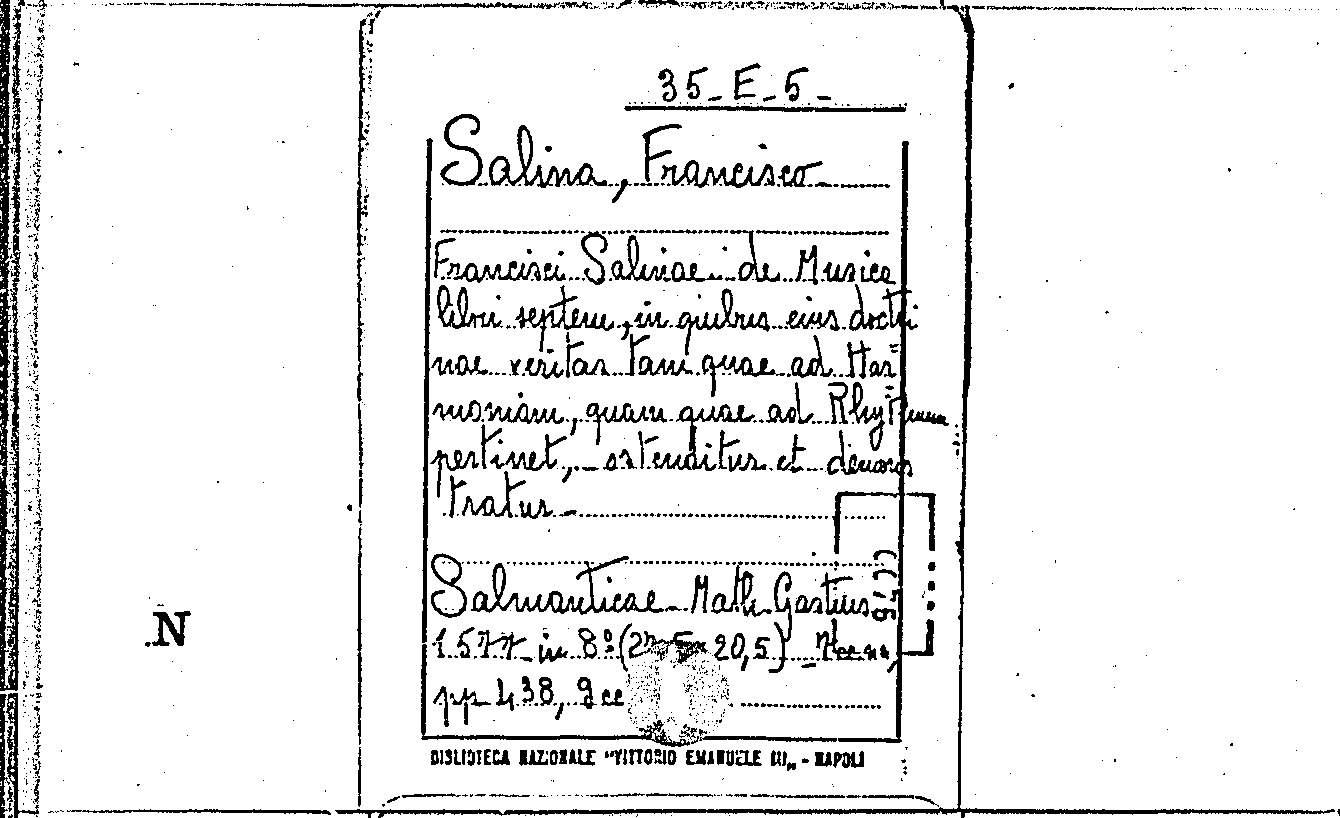 35-E-5-
Salina, Francisco
Francisci Salinae de Musica
libri septem, in quibus eius doctri
nae veritas tam quae ad Har
moniam, quam quae ad Rhythmum
pertinet, ostenditur et demons
tratur-
Salmanticae Math Gastius
1577 in 8º 20,5)
pp 438, 9cc
N
BIBLIOTECA NAZIONALE "VITTORIO EMANUELE III„ - NAPOLI